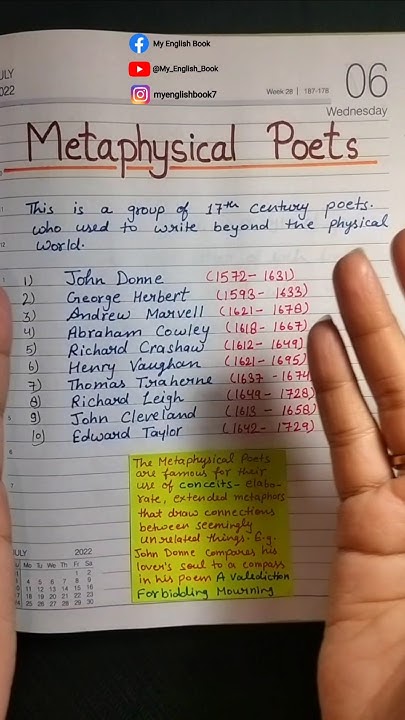 My English Book
@My_English_Book
myenglishbook7
JULY
2022
Week 28 | 187-178
06
Wednesday
Metaphysical Poets
This is a group of 17th century poets.
who used to write beyond the physical
world.
1) John Donne (1572-1631)
2) George Herbert (1593-1633)
3) Andrew Marvell (1621-1678)
4) Abraham Cowley (1618-1667)
5) Richard Crashaw (1612-1649)
6) Henry Vaughan (1621-1695)
7) Thomas Traherne (1637-1674
8) Richard Leigh (1649-1728)
9) John Cleveland (1613-1658)
10) Edward Taylor (1642-1729)
The Metaphysical Poets
are famous for their
use of conceits- elabo-
rate, extended metaphors
that draw connections
between seemingly
unrelated things. E.g.
John Donne compares his
lover's soul to a compass
in his poem A Valediction
Forbidding Mourning
JULY 2022
Mo Tu We Th Fr Sa
1 2
4 5 6 7 8 9
11 12 13 14 15 16
18 19 20 21 22 23
25 26 27 28 29 30